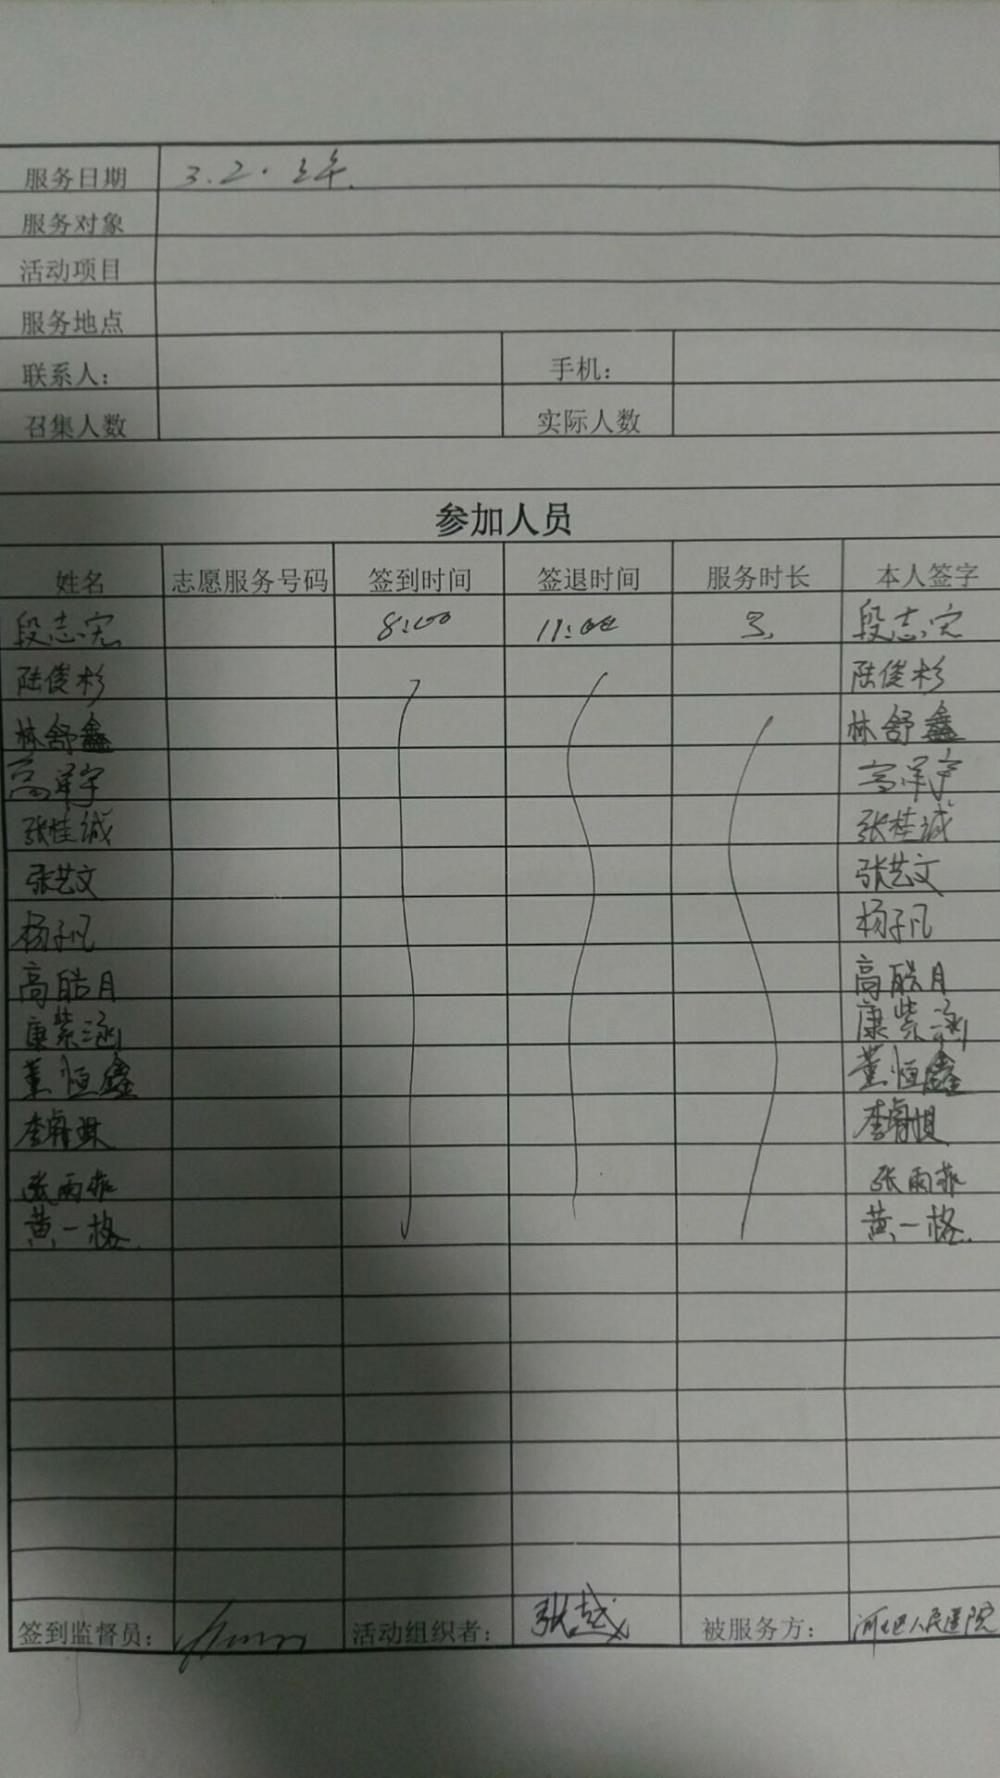 服务日期 3.2.上午.
服务对象
活动项目
服务地点
联系人： 手机：
召集人数 实际人数
参加人员
姓名 志愿服务号码 签到时间 签退时间 服务时长 本人签字
段志宏 8:00 11:00 3. 段志宏
陆俊杉 陆俊杉
林舒鑫 林舒鑫
高泽宇 高泽宇
张桂诚 张桂诚
张艺文 张艺文
杨子凡 杨子凡
高皓月 高皓月
康紫涵 康紫涵
董恒鑫 董恒鑫
李睿 李睿
张雨菲 张雨菲
黄一格. 黄一格.
签到监督员： 活动组织者： 张越 被服务方： 河北区人民医院